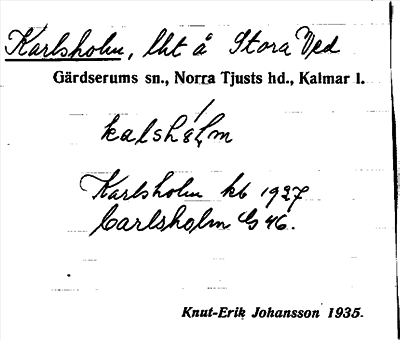 Karlsholm, lht å Stora Ved
Gärdserums sn., Norra Tjusts hd., Kalmar l.
kalshólm
Karlsholm kb 1927
Carlsholm GS 46.
Knut-Erik Johansson 1935.